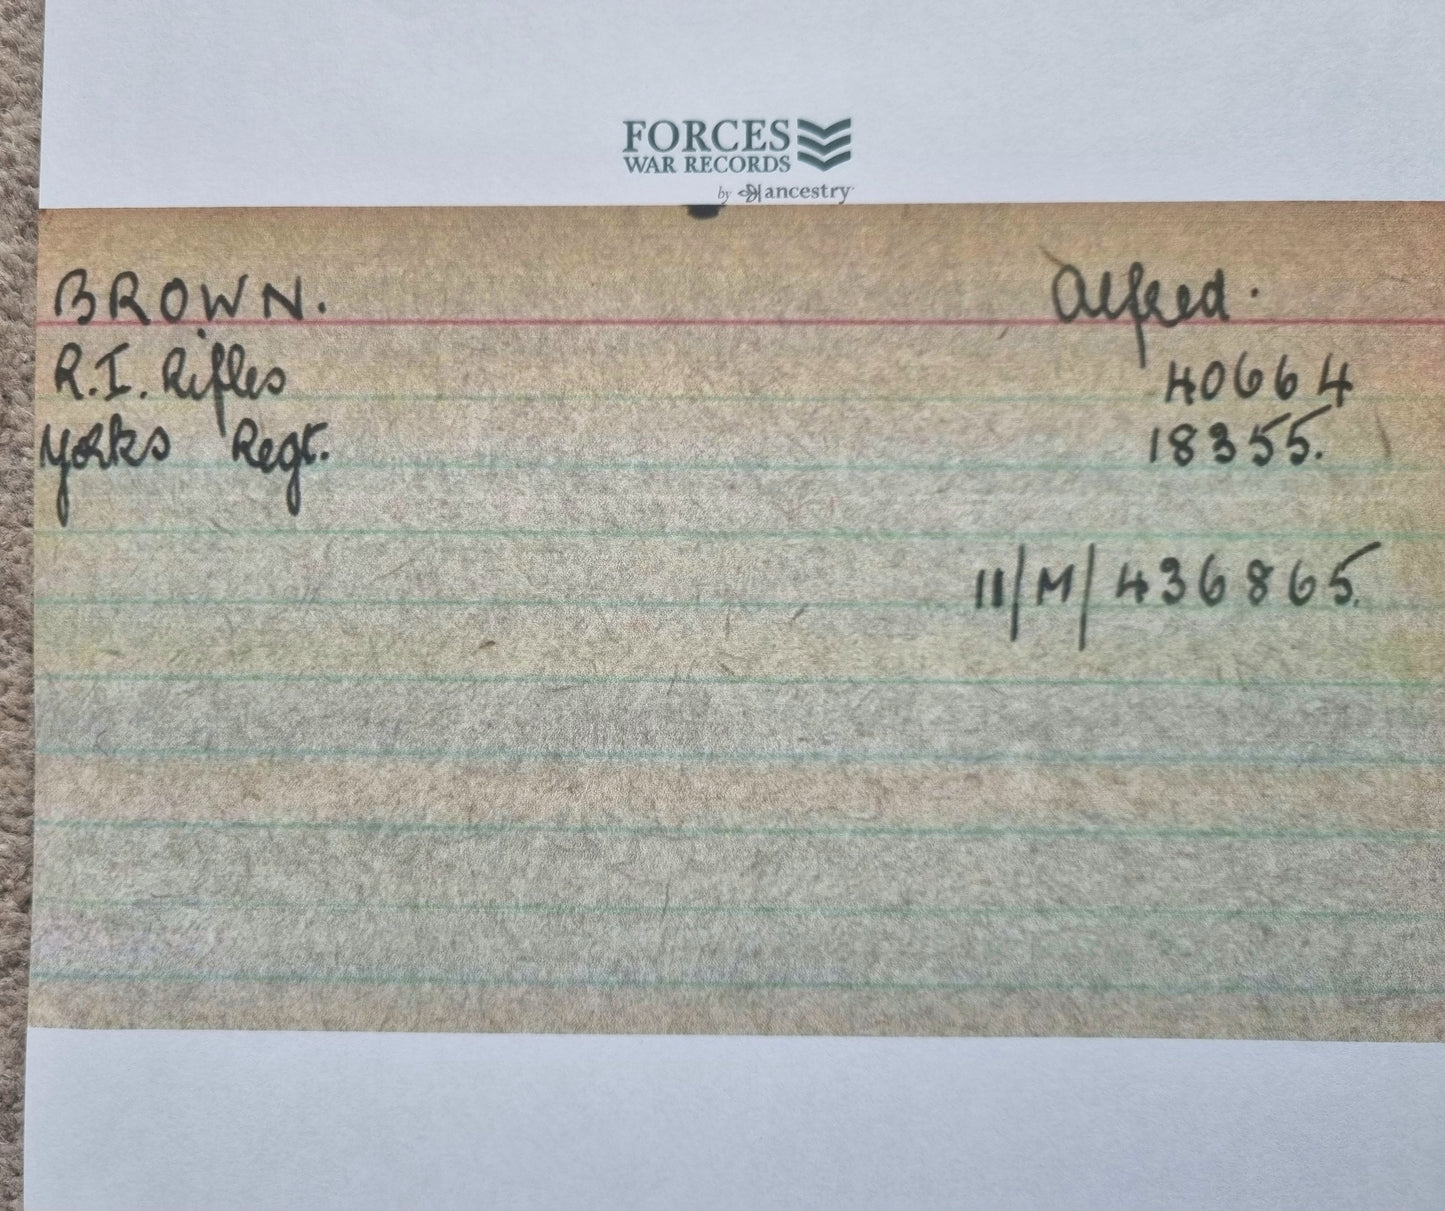 FORCES
WAR RECORDS
by ancestry
BROWN. Alfred.
R.I. Rifles 40664
Yorks Regt. 18355.
11/M/436865.